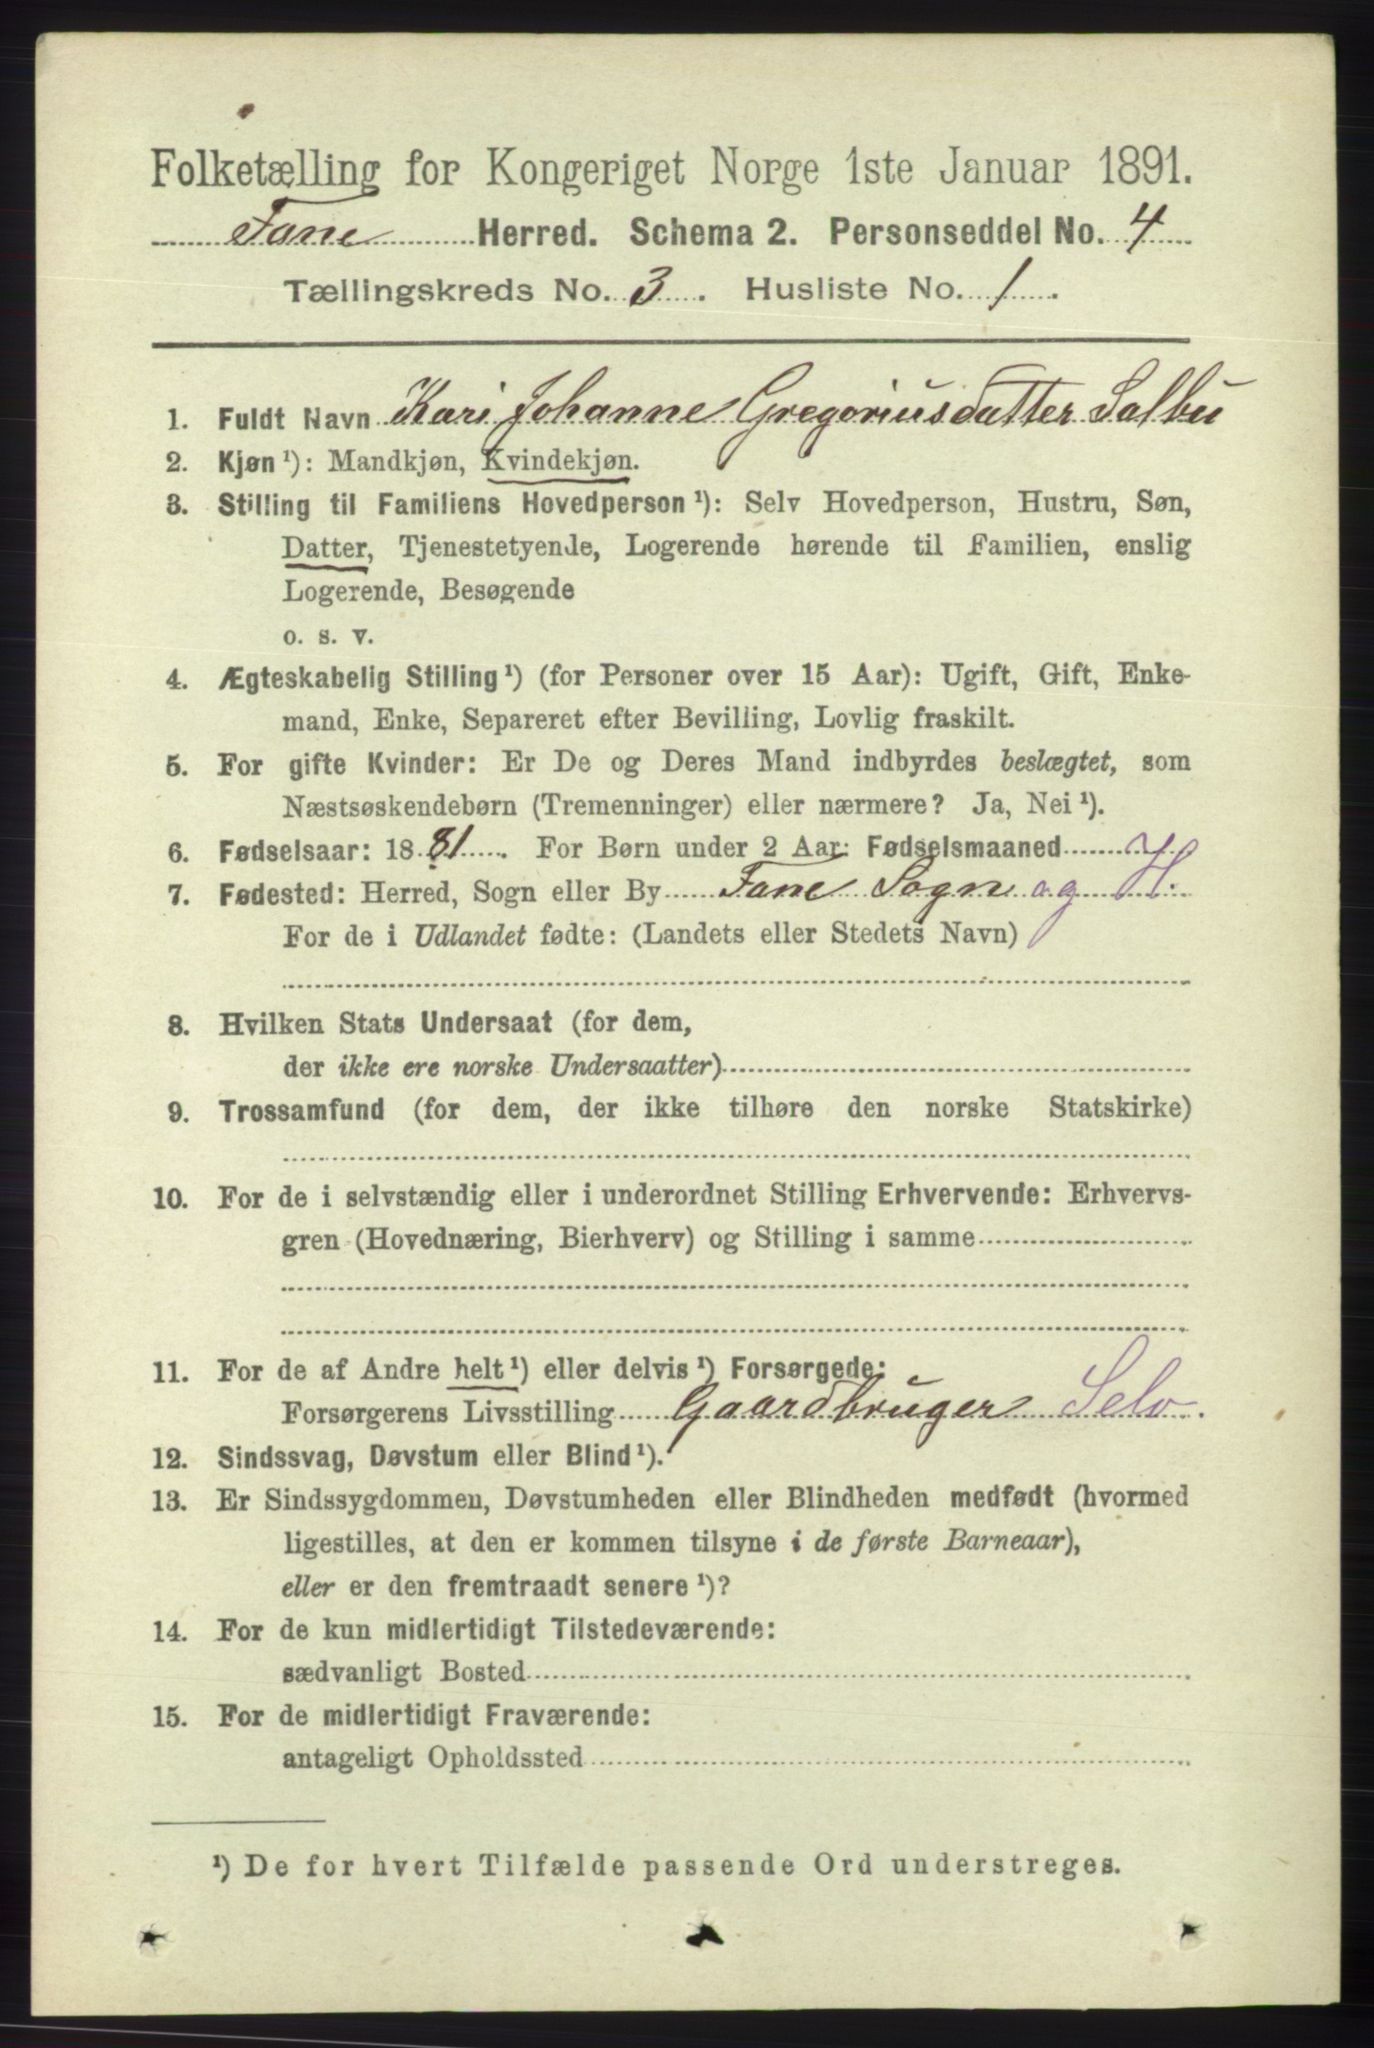 Folketælling for Kongeriget Norge 1ste Januar 1891.
Fane Herred. Schema 2. Personseddel No. 4
Tællingskreds No. 3. Husliste No. 1.
1. Fuldt Navn Kari Johanne Gregoriusdatter Salbu
2. Kjøn¹): Mandkjøn, Kvindekjøn.
3. Stilling til Familiens Hovedperson¹): Selv Hovedperson, Hustru, Søn,
Datter, Tjenestetyende, Logerende hørende til Familien, enslig
Logerende, Besøgende
o. s. v.
4. Ægteskabelig Stilling¹) (for Personer over 15 Aar): Ugift, Gift, Enke-
mand, Enke, Separeret efter Bevilling, Lovlig fraskilt.
5. For gifte Kvinder: Er De og Deres Mand indbyrdes beslægtet, som
Næstsøskendebørn (Tremenninger) eller nærmere? Ja, Nei¹).
6. Fødselsaar: 1881. For Børn under 2 Aar: Fødselsmaaned
7. Fødested: Herred, Sogn eller By Fane Sogn og H.
For de i Udlandet fødte: (Landets eller Stedets Navn)
8. Hvilken Stats Undersaat (for dem,
der ikke ere norske Undersaatter)
9. Trossamfund (for dem, der ikke tilhøre den norske Statskirke)
10. For de i selvstændig eller i underordnet Stilling Erhvervende: Erhvervs-
gren (Hovednæring, Bierhverv) og Stilling i samme
11. For de af Andre helt¹) eller delvis¹) Forsørgede:
Forsørgerens Livsstilling Gaardbruger Selv.
12. Sindssvag, Døvstum eller Blind¹).
13. Er Sindssygdommen, Døvstumheden eller Blindheden medfødt (hvormed
ligestilles, at den er kommen tilsyne i de første Barneaar),
eller er den fremtraadt senere¹)?
14. For de kun midlertidigt Tilstedeværende:
sædvanligt Bosted
15. For de midlertidigt Fraværende:
antageligt Opholdssted
¹) De for hvert Tilfælde passende Ord understreges.